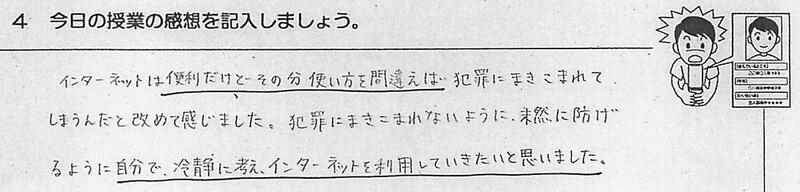 4 今日の授業の感想を記入しましょう。
インターネットは便利だけどその分使い方を間違えば犯罪にまきこまれて
しまうんだと改めて感じました。犯罪にまきこまれないように、未然に防げ
るように自分で、冷静に考え、インターネットを利用していきたいと思いました。